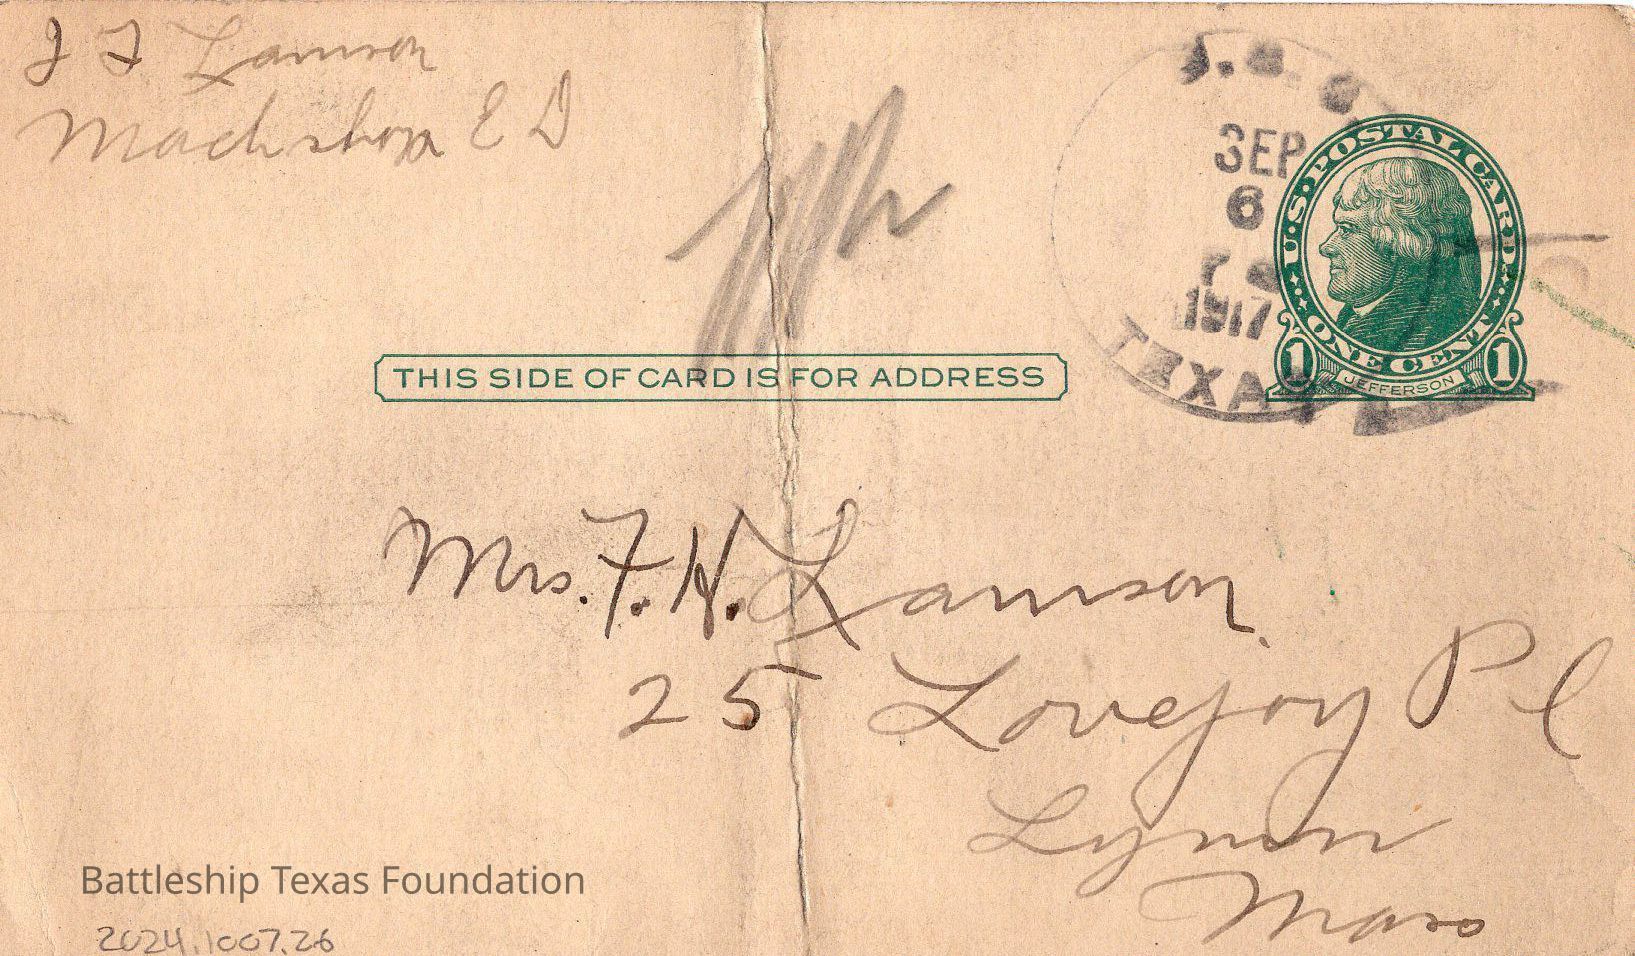 J F Lamson
Machshop E D
U.S.S.
SEP
6
1917
TEXAS
U.S. POSTAL CARD
ONE CENT
1 JEFFERSON 1
THIS SIDE OF CARD IS FOR ADDRESS
Mrs. F. H. Lamson
25 Lovejoy Pl
Lynn
Mass
Battleship Texas Foundation
2024.1007.26